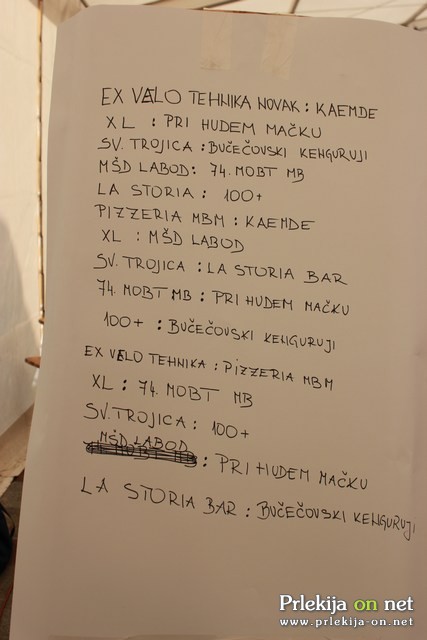 EX VELO TEHNIKA NOVAK : KAEMDE
XL : PRI HUDEM MAČKU
SV. TROJICA : BUČEČOVSKI KENGURUJI
MŠD LABOD : 74. MOBT MB
LA STORIA : 100+
PIZZERIA MBM : KAEMDE
XL : MŠD LABOD
SV. TROJICA : LA STORIA BAR
74. MOBT MB : PRI HUDEM MAČKU
100+ : BUČEČOVSKI KENGURUJI
EX VELO TEHNIKA : PIZZERIA MBM
XL : 74. MOBT MB
SV. TROJICA : 100+
MŠD LABOD : PRI HUDEM MAČKU
LA STORIA BAR : BUČEČOVSKI KENGURUJI
Prlekija on net
www.prlekija-on.net